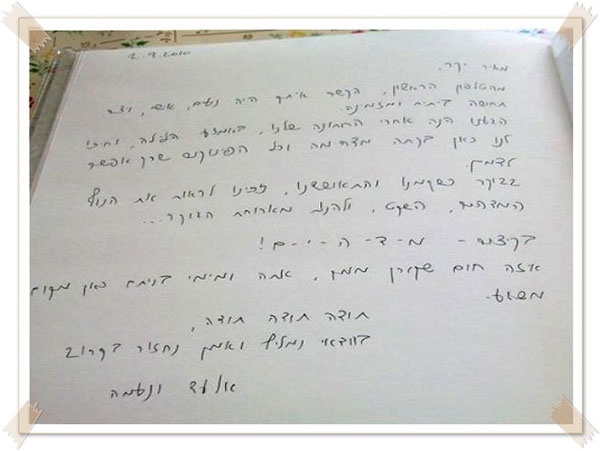 2.9.2010
מאיר יקר,
מהטלפון הראשון, הקשר איתך היה נעים, אישי, ויצר
תחושה ביתית ומזמינה.
הגענו הנה אחרי החתונה שלנו, באמצע הלילה, וחיכו
לנו כאן בקתה מדהימה וכל הפינוקים שרק אפשר
לדמיין.
בבוקר כשקמנו והתאוששנו, זכינו לראות את הנוף
המדהים, השקט, ולהנות מארוחת הבוקר...
בקיצור - מ-ד-ה-י-ם!
איזה חום שקורן ממך, אתה ומימי בניתם כאן מקום
משגע.
תודה תודה תודה,
בוודאי נמליץ ואמן נחזור בקרוב
אלעד ונעמה